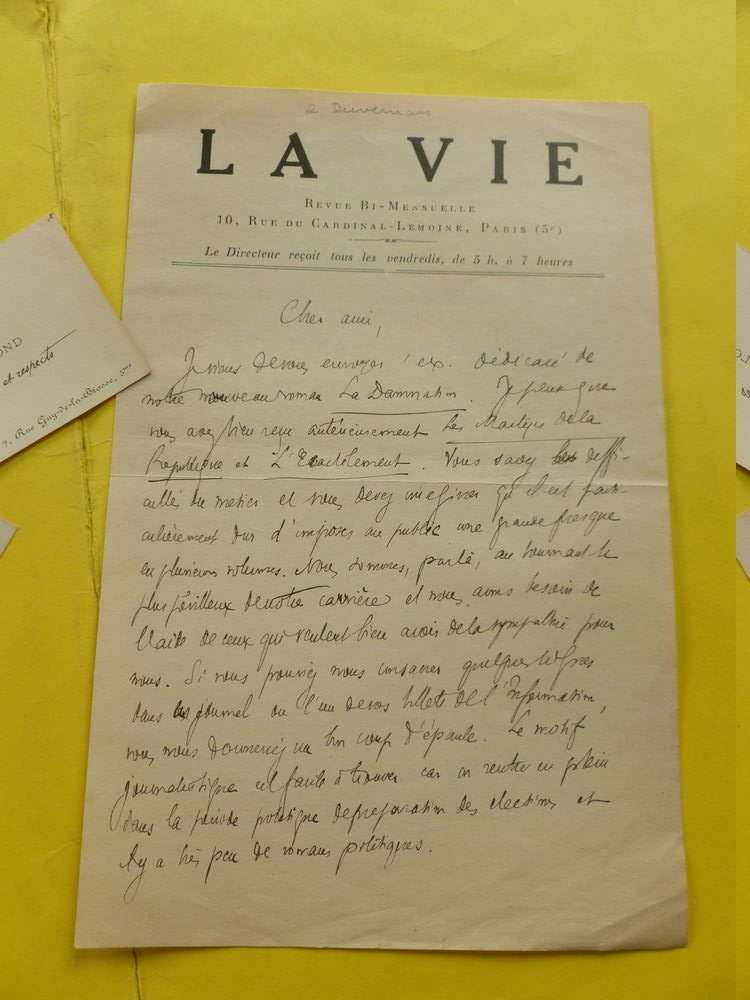 2 Duvernois
LA VIE
REVUE BI-MENSUELLE
10, RUE DU CARDINAL-LEMOINE, PARIS (5e)
Le Directeur reçoit tous les vendredis, de 5 h. à 7 heures
Cher ami,
Je vous envoyer ex. dédicacé de
notre nouveau roman La Damnation. Je pense que
vous avez bien reçu antérieurement Les Martyrs de la
République et L'Écartèlement. Vous savez les diffi-
cultés du métier et vous devez imaginer qu'il est parti-
culièrement dur d'imposer au public une grande fresque
en plusieurs volumes. Nous sommes, par là, au tournant le
plus périlleux de notre carrière et nous avons besoin de
l'aide de ceux qui veulent bien avoir de la sympathie pour
nous. Si vous pouviez nous consacrer quelques lignes
dans journal ou l'un de vos billets de l'Information,
vous nous donneriez un bon coup d'épaule. Le motif
journalistique est facile à trouver car on rentre en plein
dans la période politique de préparation des élections et
il y a très peu de romans politiques.
OND
et respects
7, Rue Guy-de-la-Brosse, 5me